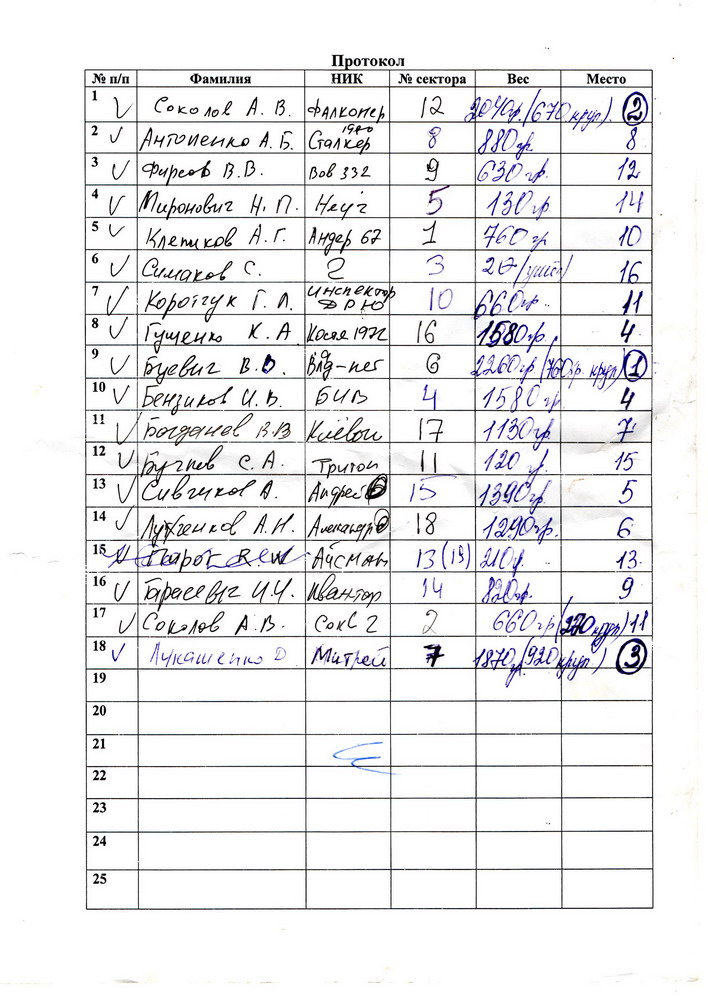 Протокол
№ п/п Фамилия НИК № сектора Вес Место
1 Соколов А. В. Фалконер 12 2040гр. (670 круп). 2
2 Антоненко А. Б. Сталкер 1980 8 880гр. 8
3 Фирсов В. В. Вов 332 9 630 гр. 12
4 Миронович Н. П. Неуч 5 130гр 14
5 Клепиков А. Г. Андер 67 1 760 гр 10
6 Симаков С. 3 20 16
7 Коротчук Г. Л. инспектор ФРЮ 10 660гр. 11
8 Гущенко К. А Костя 1972 16 1580гр. 4
9 Буевич В. О. Влад-нег 6 2260гр (760гр. круп) 1
10 Бензиков И. В. БИВ 4 1580 гр 4
11 Богданов В.В Киевои 17 1130гр. 7
12 С. А. Тритон 11 120 гр. 15
13 Сивчиков А. Андрей 6 15 1390гр. 5
14 А. Н. Александр 18 1290гр. 6
15 Айсман 13 (19) 210гр. 13.
16 Тарасевич И.И. Квантор 14 820гр. 9
17 Соколов А. В. Сокв 2 2 660гр (220 круп) 11
18 Лукашенко D Митрей 7 1870гр (920 круп) 3
19
20
21
22
23
24
25